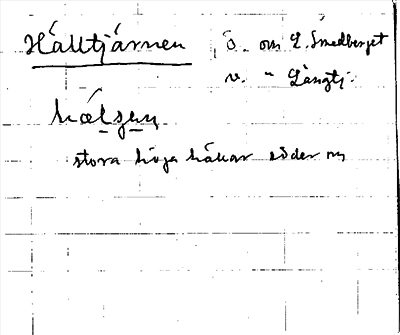 Hälltjärnen ö. om L. Smedberget
v. " Långtj.
hæ̀lʂen
stora höga hällar söder om